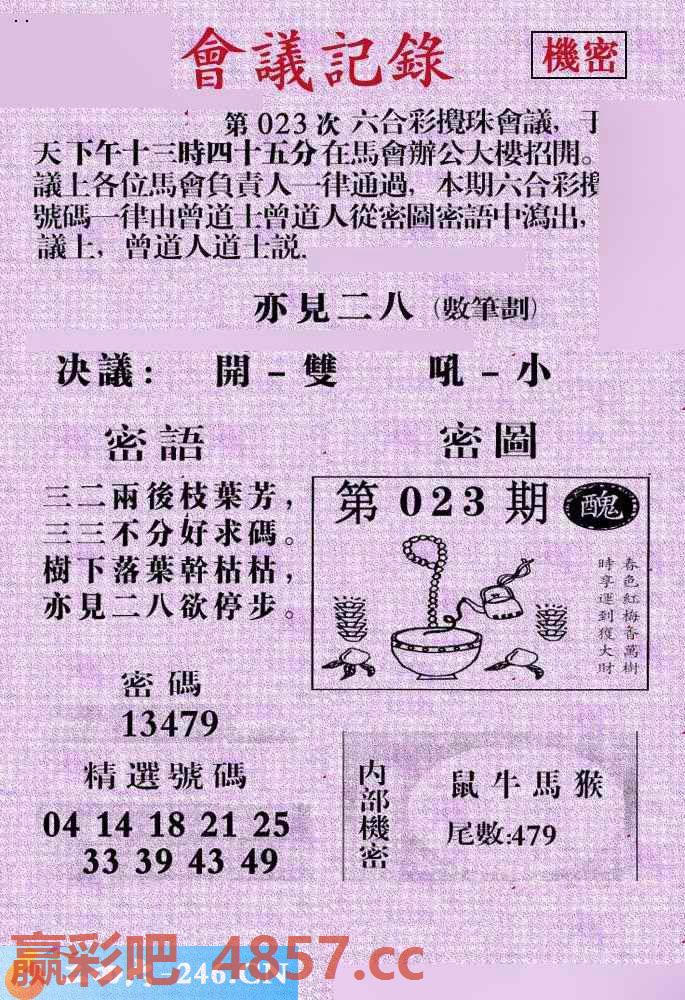 會議記錄
機密
第 023 次 六合彩攪珠會議, 于
天下午十三時四十五分在馬會辦公大樓招開。
議上各位馬會負責人一律通過, 本期六合彩攪
號碼一律由曾道士曾道人從密圖密語中瀉出,
議上, 曾道人道士説.
亦見二八 (數筆劃)
决議: 開-雙 吼-小
密語
三二兩後枝葉芳,
三三不分好求碼。
樹下落葉幹枯枯,
亦見二八欲停步。
密圖
第 023 期 醜
春色紅梅香萬樹
時享運到獲大財
密碼
13479
精選號碼
04 14 18 21 25
33 39 43 49
内部機密
鼠牛馬猴
尾數:479
赢彩吧.4857.cc
-246.CN